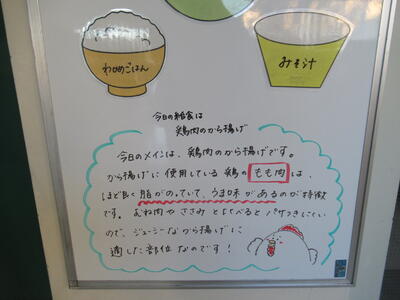 わかめごはん
みそ汁
今日の給食は
鶏肉のから揚げ
今日のメインは、鶏肉のから揚げです。
から揚げに使用している鶏のもも肉は、
ほど良く脂がのっていて、うま味があるのが特徴
です。むね肉やささみとくらべるとパサつきにくい
ので、ジューシーなから揚げに
適した部位なのです！